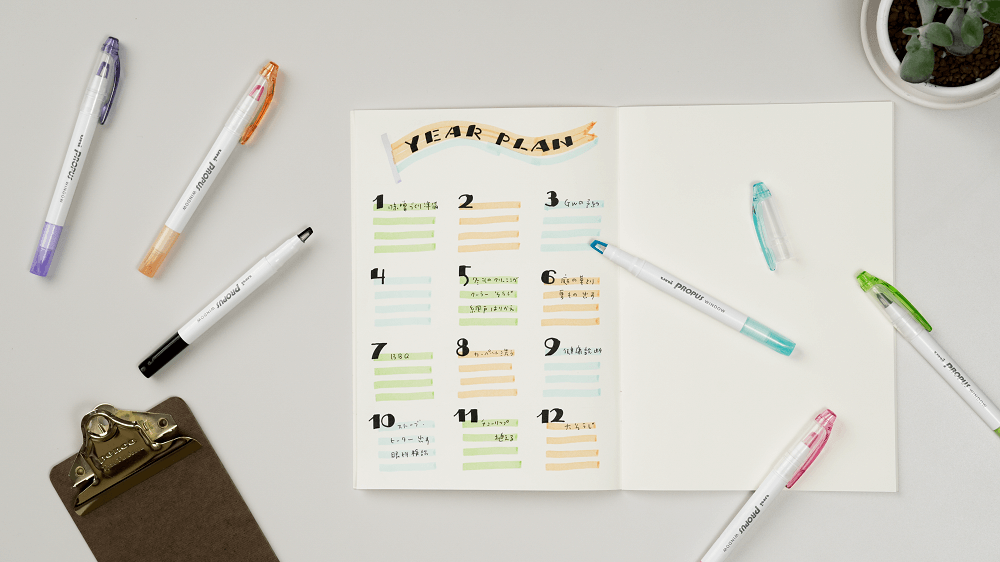 YEAR PLAN
1 味噌づくり準備
2
3 GWの予定
4
5
クーラー
網戸はりかえ
6
夏子の出す
7 BBQ
8 カーペット洗う
9 健康診断
10 ストーブ・
ヒーター出す
眼科検診
11 チューリップ
植える
12 大そうじ
uni PROPUS WINDOW
uni PROPUS WINDOW
uni PROPUS WINDOW
uni PROPUS WINDOW
uni PROPUS WINDOW
uni PROPUS WINDOW